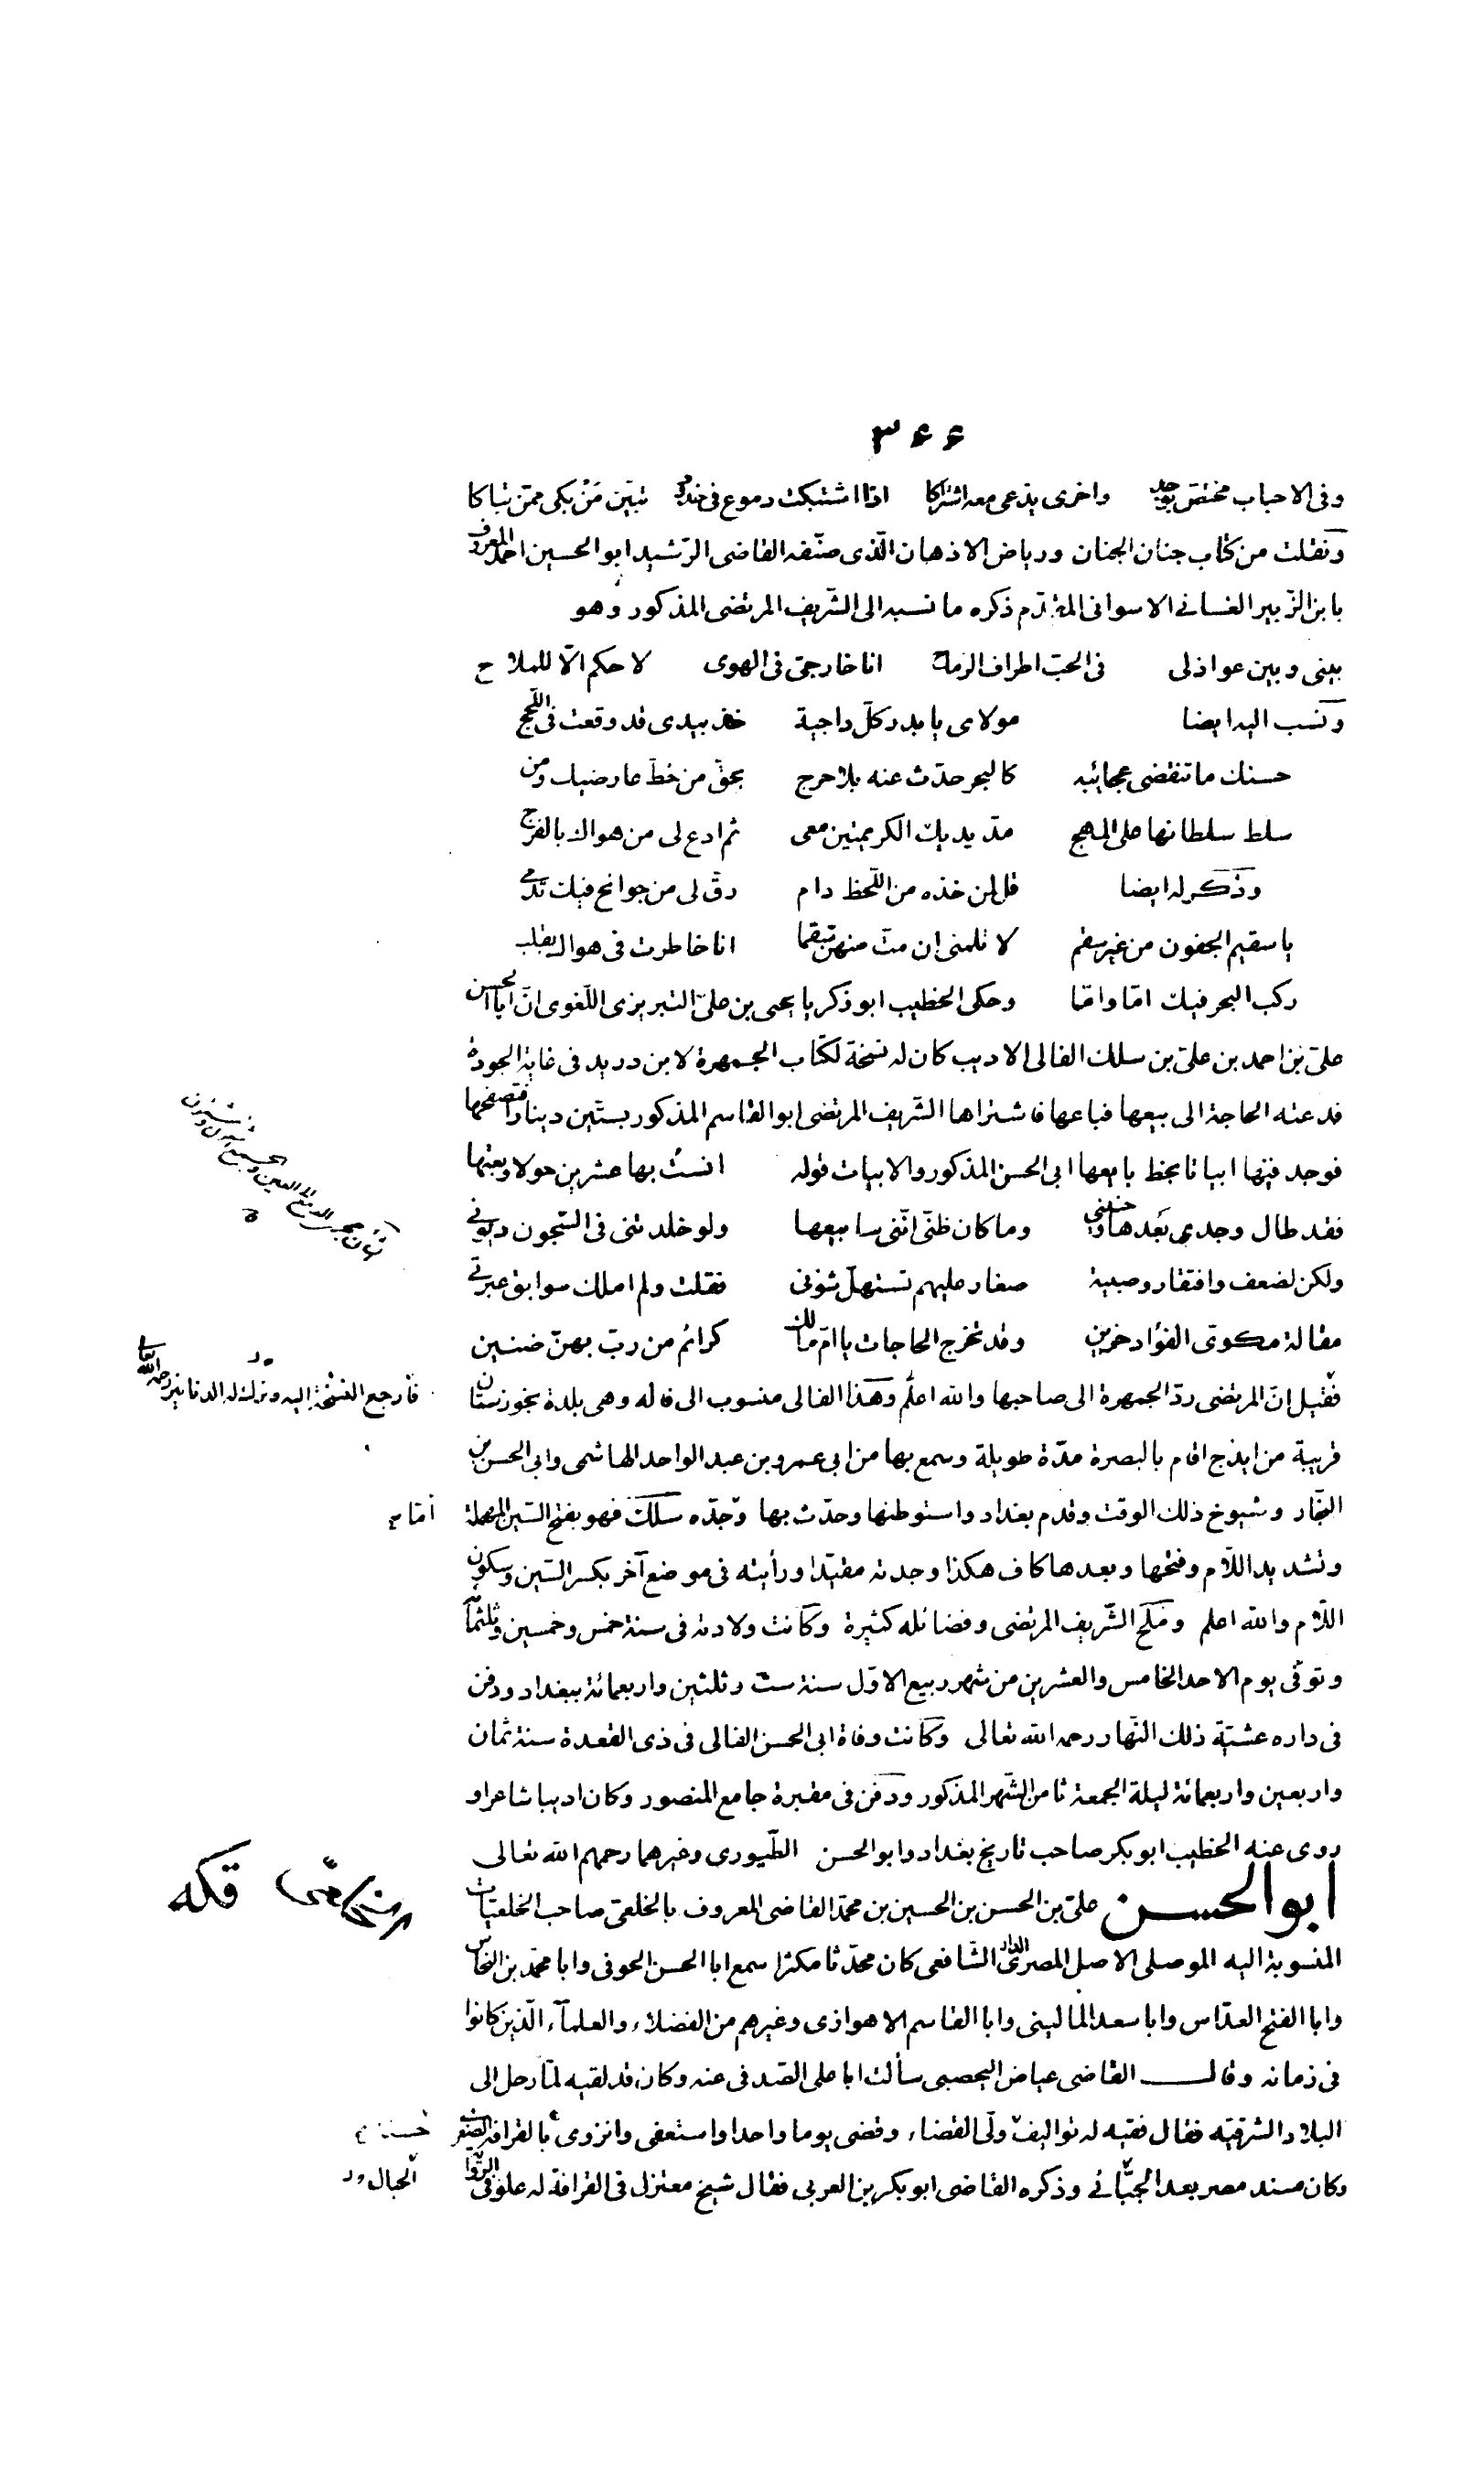 ٣٦٦
وفى الاحباب مختصّ بوجد واخرى يدّعى معه اشتراكا اذا اشتبكت دموع فى خدود تبيّن مَنْ بكى ممّن تباكا
ونقلت من كتاب جنان الجنان ورياض الاذهان الّذى صنّفه القاضى الرّشيد ابو الحسين احمد المعروف
بابن الزّبير الغسانى الاسوانى المقدّم ذكره ما نسبه الى الشّريف المرتضى المذكور وهو
بينى وبين عواذلى فى الحبّ اطراف الرماح انا خارجىّ فى الهوى لا حكم الّا للملاح
ونسب اليه ايضا مولاى يا بدر كلّ داجية خذ بيدى قد وقعت فى اللّجج
حسنك ما تنقضى عجائبه كالبحر حدّث عنه بلا حرج بحقّ من خطّ عارضيك ومن
سلط سلطانها على المهج مدّ يديك الكريمتين معى ثم ادع لى من هواك بالفرج
وذكر له ايضا قل لمن خدّه من اللّحظ دام رقّ لى من جوانح فيك تدمى
يا سقيم الجفون من غير سقم لا تلمنى ان متّ منهن سقما انا خاطرت فى هواك بقلب
ركب البحر فيك امّا وامّا وحكى الخطيب ابو زكريا يحيى بن علىّ التبريزى اللّغوى انّ ابا الحسن
علىّ بن احمد بن علىّ بن سلك الفالى الاديب كان له نسخة لكتاب الجمهرة لابن دريد فى غاية الجودة
فدعته الحاجة الى بيعها فباعها فاشتراها الشّريف المرتضى ابو القاسم المذكور بستّين دينارا فتصفّحها
فوجد فيها ابياتا بخط بايعها ابى الحسن المذكور والابيات قوله انستُ بها عشرين حولا وبعتها
فقد طال وجدى بَعدها وحنينى وما كان ظنّى انّنى سابيعها ولو خلدتنى فى السّجون ديونى
ولكن لضعف وافتقار وصبية صغار عليهم تستهلّ شؤنى فقلت ولم املك سوابق عبرتى
مقالة مكوىّ الفؤاد حزين وقد تخرج الحاجات يا امّ مالك كرائم من ربّ بهنّ ضنين
فقيل انّ المرتضى ردّ الجمهرة الى صاحبها والله اعلم وهذا الفالى منسوب الى فاله وهى بلدة بخوزستان
فأرجع النسخة اليه وترك له الدنانير رحمه الله تعالى
قريبة من ايذج اقام بالبصرة مدّة طويلة وسمع بها من ابى عمرو بن عبد الواحد الهاشمى وابى الحسن بن
النجّار وشيوخ ذلك الوقت وقدم بغداد واستوطنها وحدّث بها وجدّه سلك فهو بفتح السّين المهملة
أمّا
وتشديد اللّام وفتحها وبعدها كاف هكذا وجدته مقيّدا ورأيته فى موضع آخر بكسر السّين وسكون
اللّام والله اعلم وملح الشّريف المرتضى وفضائله كثيرة وكانت ولادته فى سنة خمس وخمسين وثلثمآئة
وتوفّى يوم الاحد الخامس والعشرين من شهر ربيع الاوّل سنة ستّ وثلثين واربعمائة ببغداد ودفن
فى داره عشيّة ذلك النّهار رحمه الله تعالى وكانت وفاة ابى الحسن الفالى فى ذى القعدة سنة ثمان
واربعين واربعمائة ليلة الجمعة ثامن الشّهر المذكور ودفن فى مقبرة جامع المنصور وكان اديبا شاعرا و
روى عنه الخطيب ابو بكر صاحب تاريخ بغداد وابو الحسن الطّيورى وغيرهما رحمهم الله تعالى
ابو الحسن علىّ بن الحسن بن الحسين بن محمّد القاضى المعروف بالخلعىّ صاحب الخلعيّات
المنسوبة اليه الموصلى الاصل المصرىّ الدار الشّافعى كان محدّثا مكثرا سمع ابا الحسن الحوفى وابا محمّد بن النحّاس
وابا الفتح العدّاس وابا سعد الماليني وابا القاسم الاهوازى وغيرهم من الفضلاء والعلمآء الّذين كانوا
فى زمانه وقال القاضى عياض اليحصبى سألت ابا على الصّدفى عنه وكان قد لقيه لمّا رحل الى
البلاد الشرقيّه فقال فقيه له تواليف ولّى القضاء وقضى يوما واحدا واستعفى وانزوى بالقرافة الصغرى
وكان مسند مصر بعد الجبّائى وذكره القاضى ابو بكر بن العربى فقال شيخ معتزل فى القرافة له علوّ فى الرّوا
الحبال